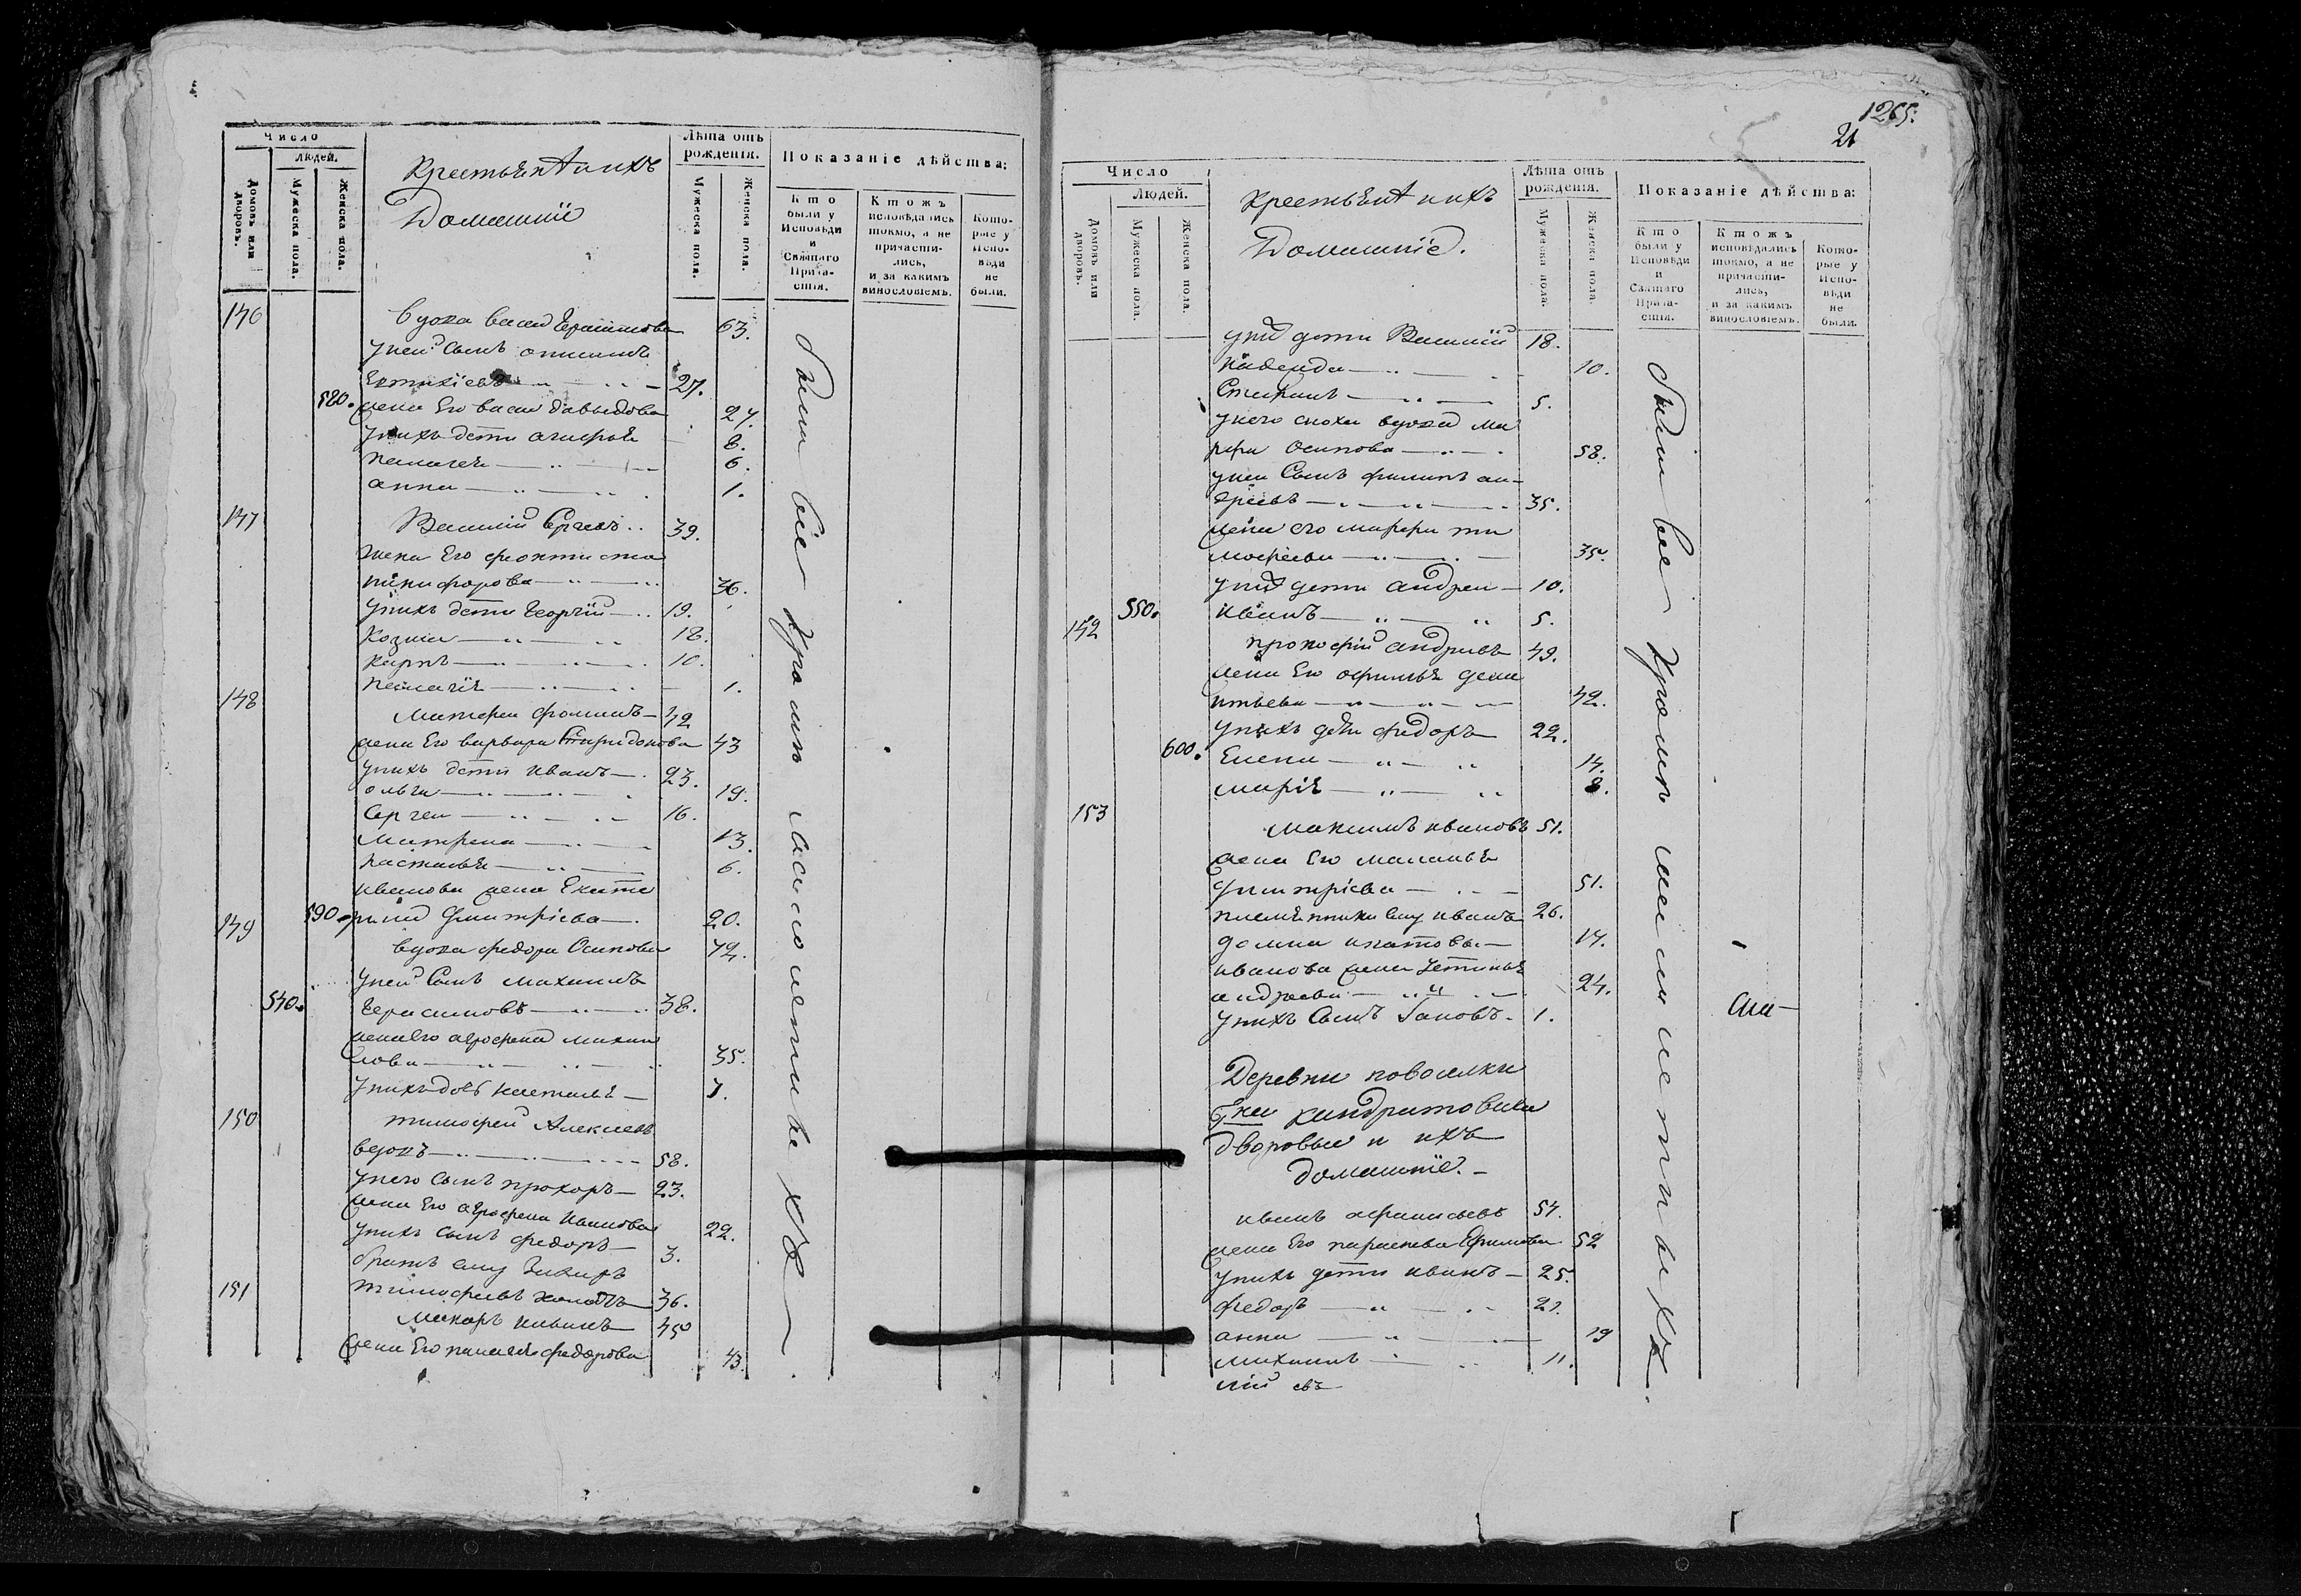 Число
людей.
Домовъ или дворовъ.
Мужеска пола.
Женска пола.
Крестьянѣ и ихъ
Домашніе
Лѣта отъ
рожденія.
Мужеска пола.
Женска пола.
Показаніе дѣйства:
Кто
были у
Исповѣди
и
Святаго
Прича-
стія.
Ктожъ
исповѣдались
токмо, а не
причасти-
лись,
и за какимъ
винословіемъ.
Кото-
рые у
Испо-
вѣди
не
были.
146 вдова 63.
у ней сынъ
27.
580. жена Его Давыдова 27.
у нихъ дети 8.
Пелагея 6.
анна 1.
147 Василий 39.
жена Его феоктиста
никифорова 36.
у нихъ дети Георгий 19.
Козма 18.
карпъ 10.
пелагія 1.
148 Матфеи фоминъ 42
жена Его варвара Спиридонова 43
у нихъ дети иванъ 23.
ольга 19.
Сергеи 16.
Матрена 13.
настасья 6.
иванова жена Екате
590. рина дмитріева 20.
149 вдова федора Осипова 72.
у ней Сынъ
540. Герасимовъ 38.
жена Его агрофена михаи
лова 35.
у нихъ дочь настасья 7.
150 тимофей Алексеевъ
вдовъ 58.
у него сынъ прохоръ 23.
жена Его агрофена Иванова 22.
у нихъ сынъ федоръ 3.
братъ ему
тимофеевъ холостъ 36.
151 Макаръ 45
жена Его пелагея федорова 43.
были все кроме малолетних
1265.
21
Число
Людей.
Домовъ или дворовъ.
Мужеска пола.
Женска пола.
Крестьянѣ и ихъ
Домашніе.
Лѣта отъ
рожденія.
Мужеска пола.
Женска пола.
Показаніе дѣйства:
Кто
были у
Исповѣди
и
Святаго
Прича-
стія.
Ктожъ
исповѣдались
токмо, а не
причасти-
лись,
и за какимъ
винословіемъ.
Кото-
рые у
Испо-
вѣди
не
были.
дети Василий 18.
надежда 10.
Степанъ 5.
у него сноха вдова ма
рфа Осипова 58.
у неи Сынъ филипъ ан
дреевъ 35.
жена его марфа ти
мофеева 35.
дети андреи 10.
550. иванъ 5.
152 прокофий андреевъ 49.
жена Его
42.
у нихъ дети федоръ 22.
600. Елена 14.
марія 8.
153 Максимъ ивановъ 51.
жена Его маланья
дмитріева 51.
племянники ему иванъ 26.
домна 14.
иванова жена Устинья
андреева 24.
у нихъ Сынъ Iаковъ 1.
Деревни новоселки
дворовые и ихъ
домашніе.
иванъ афанасьевъ 54.
жена Его параскева Ефимова 52
у нихъ дети иванъ 25.
федоръ 21.
анна 19
михаилъ 11.
были все кроме малолетних